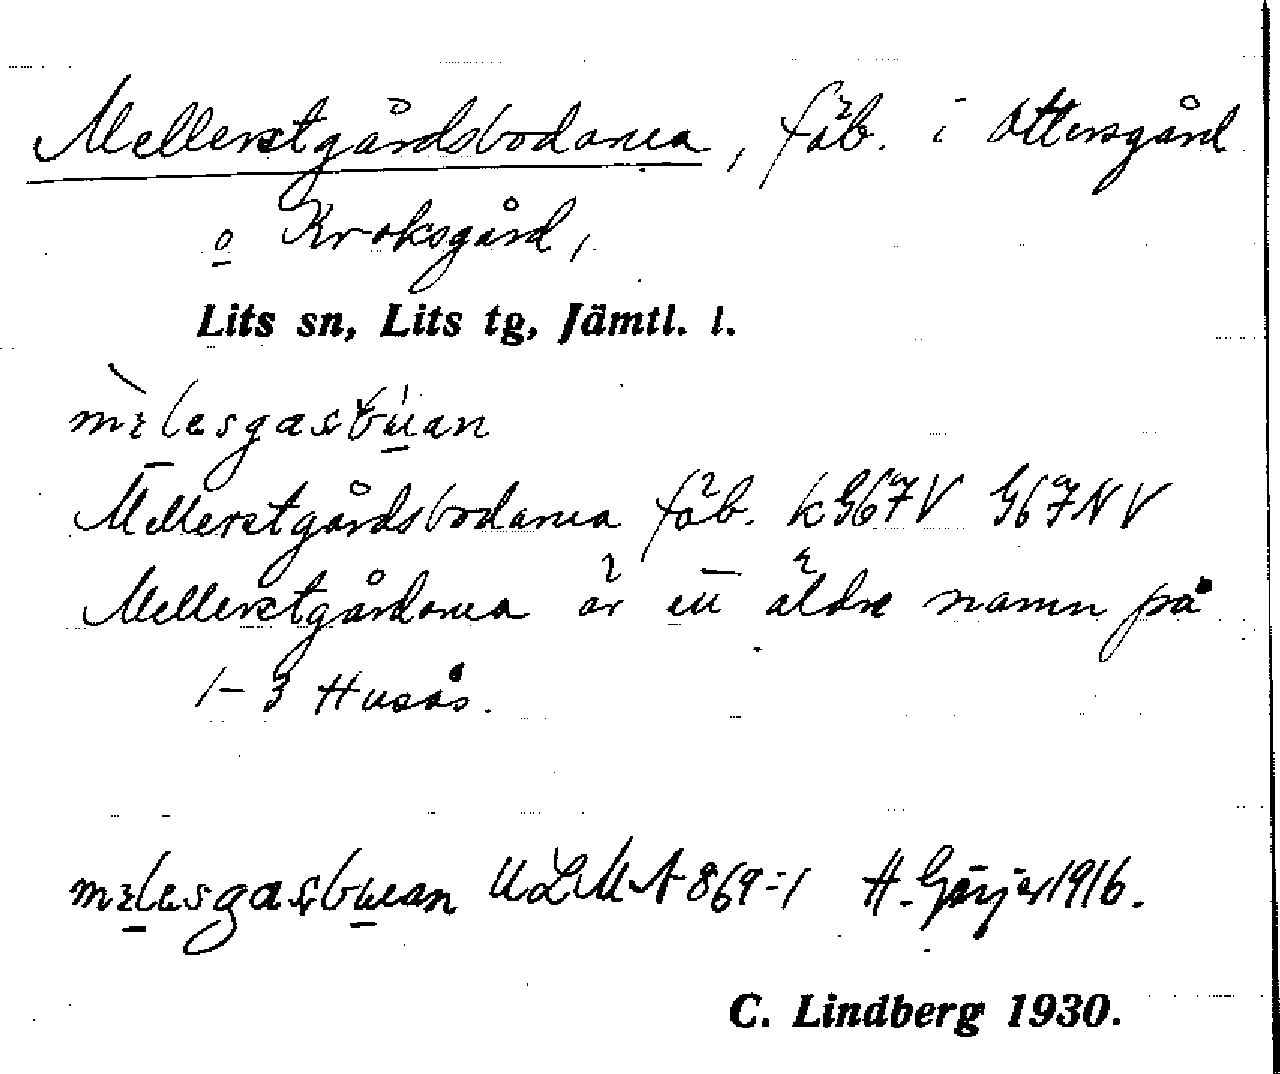 Mellerstgårdsbodarna, fäb. i Ottersgård
o Kroksgård,
Lits sn, Lits tg, Jämtl. l.
mɛlesgasbuan
Mellerstgårdsbodarna fäb. k G67V G67NV
Mellerstgårdarna är ett äldre namn på
1-3 Husås.
mɛlesgasbuan ULMA 869:1 H. Geijer 1916.
C. Lindberg 1930.